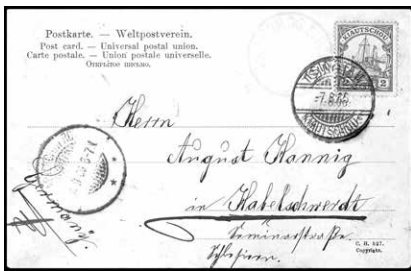 Postkarte. — Weltpostverein.
Post card. — Universal postal union.
Carte postale. — Union postale universelle.
Открытое письмо.
KIAUTSCHOU
2 2
TSINGTAU
KIAUTSCHOU
Herrn
August Hannig
in Habelschwerdt
Seminarstraße
Schlesien.
Germany.
C. H. 927.
Copyright.